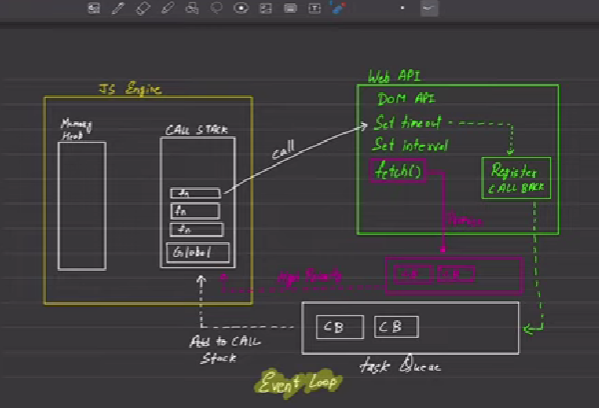 JS Engine
Memory
Heap
CALL STACK
fn
fn
fn
Global
call
Web API
DOM API
Set timeout
Set interval
fetch()
Register
CALL BACK
CB
CB
Add to CALL
Stack
task Queue
Event Loop